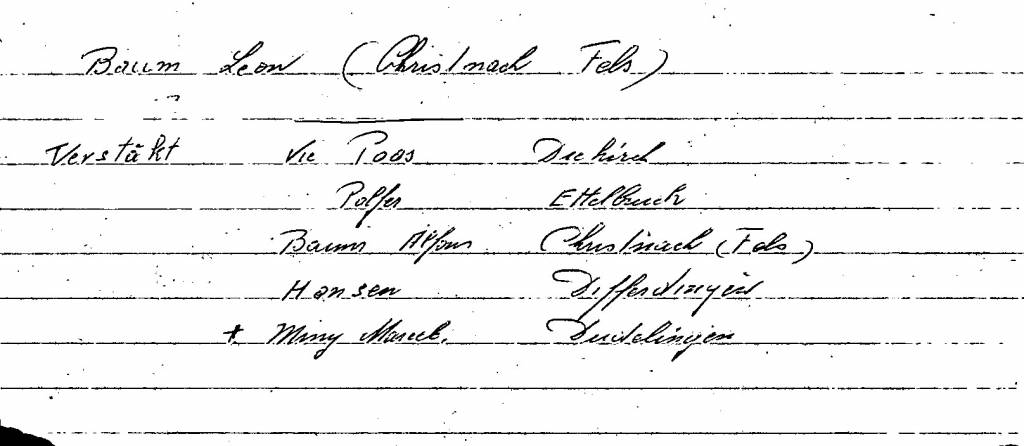 Baum Leon (Christnach Fels)
Verstäkt Vic Poos Diekirch
Polfer Ettelbruck
Baum Alfons Christnach (Fels)
Hansen Differdingen
+ Miny Marcel. Dudelingen